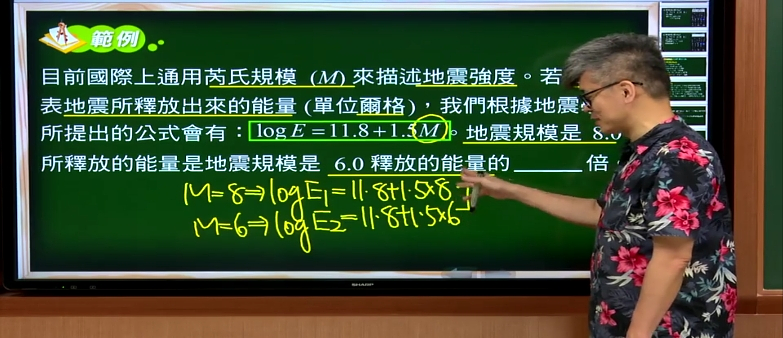 範例
目前國際上通用芮氏規模 (M) 來描述地震強度。若
表地震所釋放出來的能量 (單位爾格)，我們根據地震
所提出的公式會有：log E = 11.8 + 1.5M。地震規模是 8.0
所釋放的能量是地震規模是 6.0 釋放的能量的______倍
M=8⇒log E₁=11.8+1.5×8
M=6⇒log E₂=11.8+1.5×6
SHARP